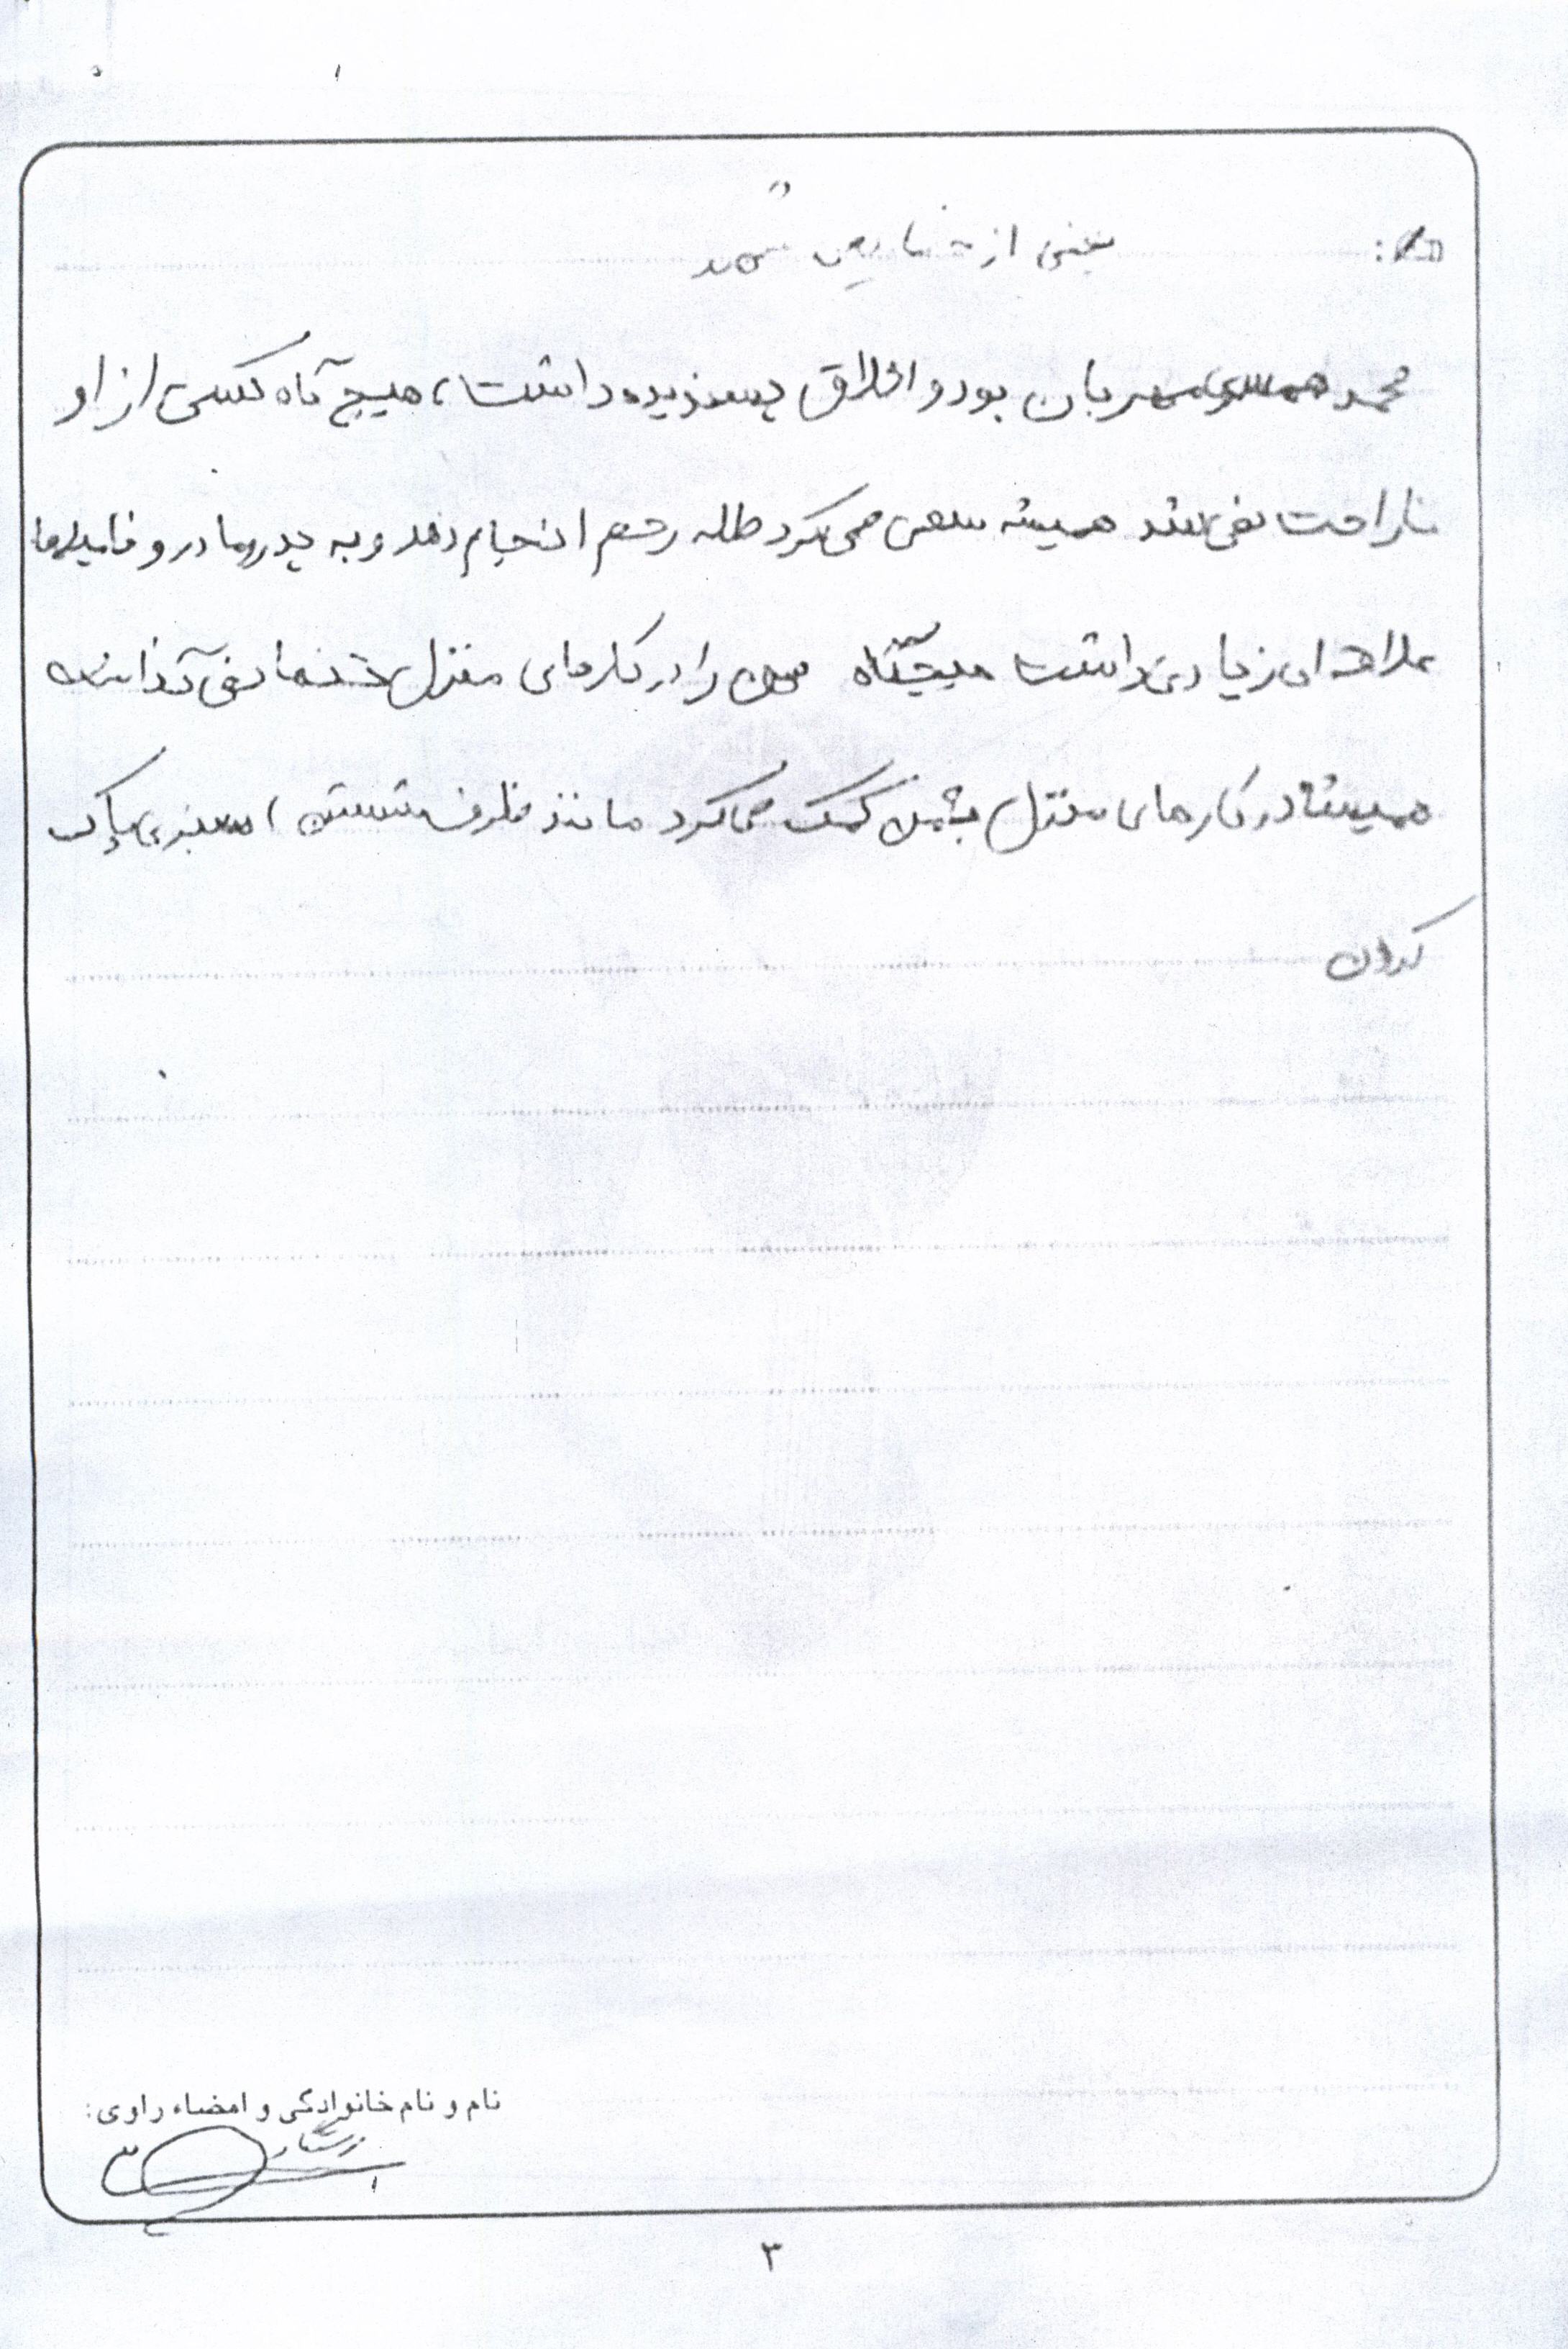 بعضی از خصایص شهید
محمد همسری مهربان بود و اخلاق پسندیده داشت، هیچ گاه کسی از او
ناراحت نمی شد همیشه سعی می کرد صله رحم انجام دهد و به پدر و مادر و فامیل ها
علاقه ای زیادی داشت هیچگاه من را در کارهای منزل تنها نمی گذاشت
همیشه در کارهای منزل به من کمک می کرد مانند ظرف شستن، سبزی پاک
کردن
نام و نام خانوادگی و امضاء راوی:
۳